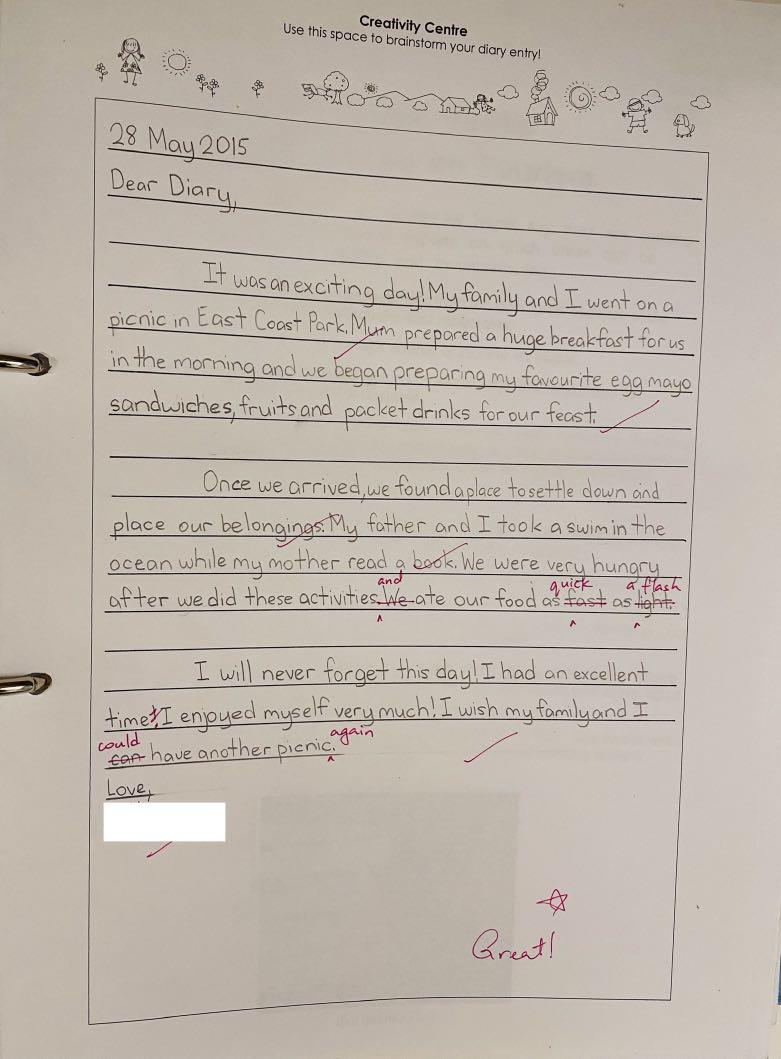 Creativity Centre
Use this space to brainstorm your diary entry!
28 May 2015
Dear Diary,
It was an exciting day! My family and I went on a
picnic in East Coast Park. Mum prepared a huge breakfast for us
in the morning and we began preparing my favourite egg mayo
sandwiches, fruits and packet drinks for our feast.
Once we arrived, we found a place to settle down and
place our belongings. My father and I took a swim in the
ocean while my mother read a book. We were very hungry
and quick a flash
after we did these activities. We ate our food as fast as light.
I will never forget this day! I had an excellent
time! I enjoyed myself very much! I wish my family and I
could again
can have another picnic.
Love,
Great!